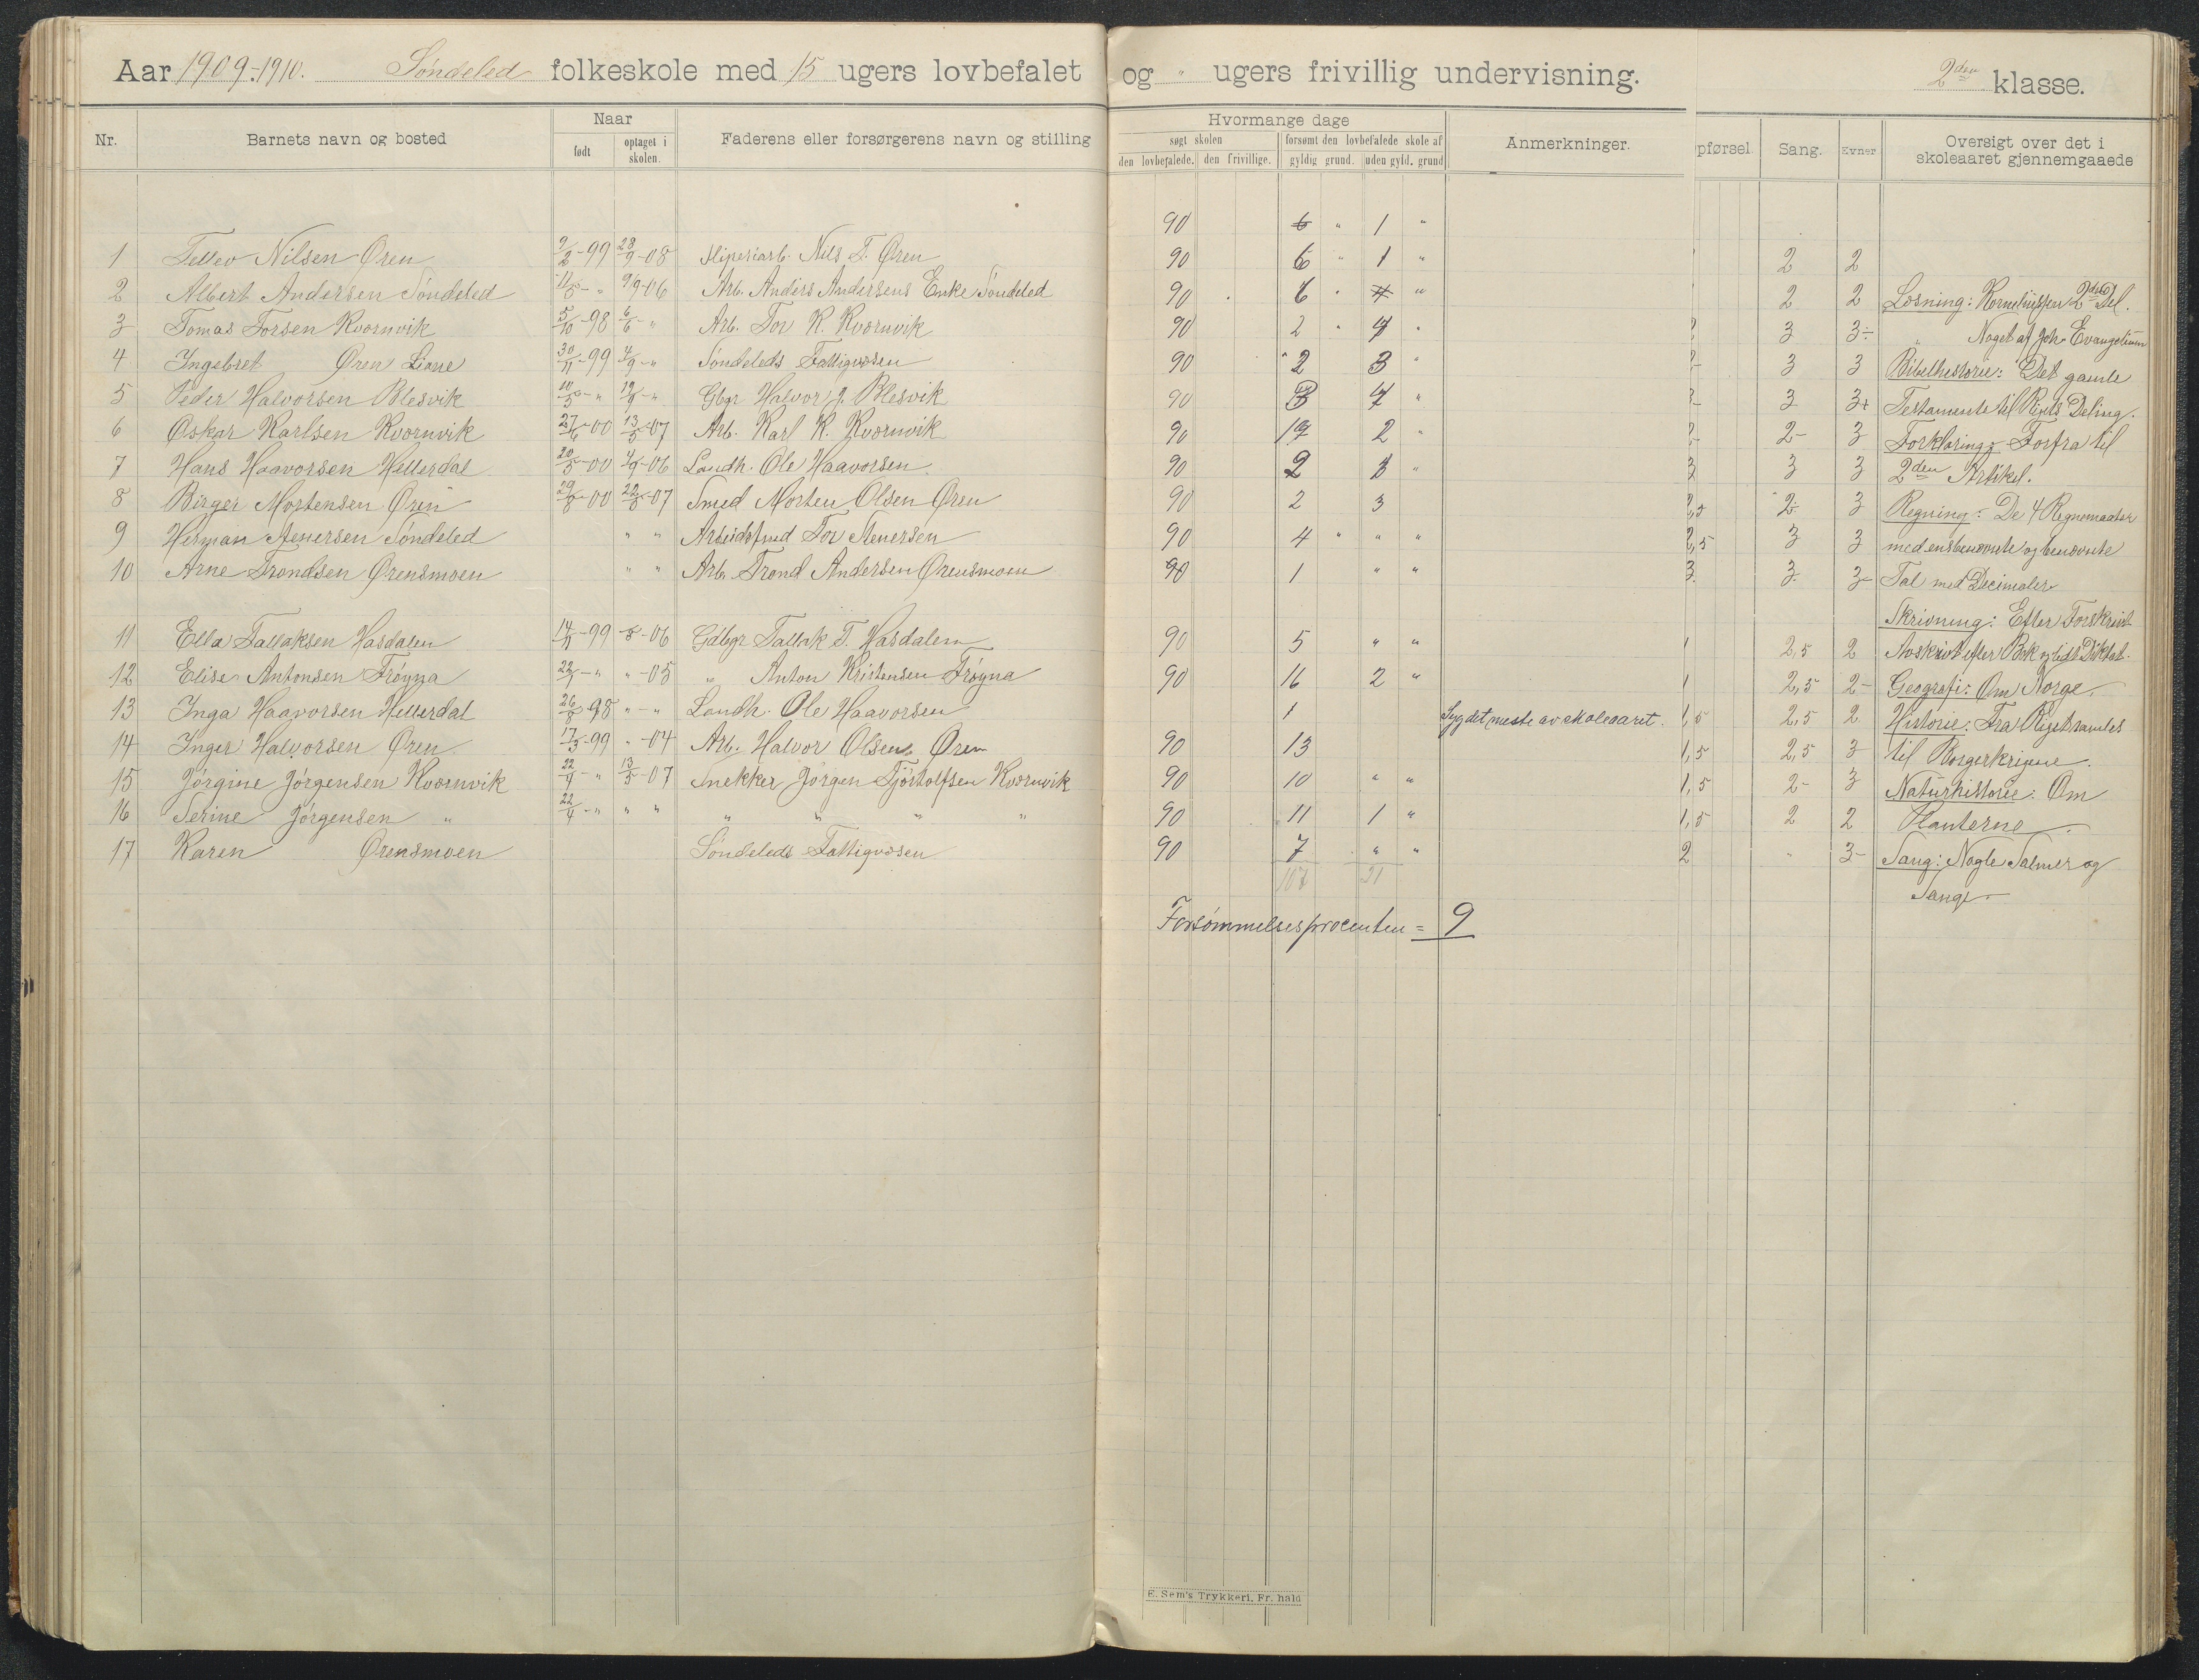 Aar 1909-1910. Søndeled folkeskole med 15 ugers lovbefalet og " ugers frivillig undervisning. 2den klasse.
Nr. Barnets navn og bosted Naar født optaget i skolen. Faderens eller forsørgerens navn og stilling
Hvormange dage
søgt skolen forsømt den lovbefalede skole af
den lovbefalede. den frivillige. gyldig grund. uden gyld. grund
Anmerkninger.
pførsel. Sang. Evner Oversigt over det i skoleaaret gjennemgaaede
1 Tellev Nilsen Øren 9/2-99 28/9-08 Sliperiarb. Nils T. Øren
2 Albert Andersen Søndeled 11/5-" 9/9-06 Arb. Anders Andersens Enke Søndeled
3 Tomas Torsen Kvørnvik 5/10-98 6/6-" Arb. Tor K. Kvørnvik
4 Ingebret Øren Liane 30/11-99 4/9-" Søndeleds Fattigvæsen
5 Peder Halvorsen Blesvik 10/5-" 12/9-" Gbgr Halvor J. Blesvik
6 Oskar Karlsen Kvørnvik 27/6-00 13/5-07 Arb. Karl K. Kvørnvik
7 Hans Haavorsen Hellerdal 20/5-00 4/9-06 Landh. Ole Haavorsen
8 Birger Mortensen Øren 29/8-00 22/8-07 Smed Morten Olsen Øren
9 Herman Stenersen Søndeled " " Arbeidsfmd Tor Stenersen
10 Arne Trondsen Ørensmoen " " Arb. Trond Andersen Ørensmoen
11 Ella Tallaksen Hasdalen 14/11-99 -06 Gdbgr Tallak T. Hasdalen
12 Elise Antonsen Frøyna 22/1-" "-05 " Anton Kristensen Frøyna
13 Inga Haavorsen Hellerdal 26/8-98 "-" Landh. Ole Haavorsen
14 Inger Halvorsen Øren 17/3-99 "-04 Arb. Halvor Olsen Øren
15 Jørgine Jørgensen Kvørnvik 22/4-" 13/5-07 Snekker Jørgen Tjøstolfsen Kvørnvik
16 Serine Jørgensen " 22/4-" " " " " " "
17 Karen Ørensmoen Søndeleds Fattigvæsen
90 6 " 1 "
90 6 " 1 "
90 6 " "
90 2 "
90 2 3
90 "
90 19 2 "
90 2 "
90 2 3
90 4 " " "
90 1 " "
90 5 " "
90 16 2 "
1 Syg det meste av skoleaaret.
90 13
90 10 " "
90 11 1 "
90 7 " "
107 21
Forsømmelsesprocenten = 9
2 2
2 2
3 3-
3 3
3 3+
2- 3
3 3
2,5 2- 3
2,5 3 3
3 3 3-
1 2,5 2
1 2,5 2-
1,5 2,5 2
1,5 2,5 3
1,5 2- 3
1,5 2 2
2 " 3-
Læsning: Korneliussen 2den Del.
" Noget af Joh. Evangelium
Bibelhistorie: Det gamle
Testamente til Rigets Deling.
Forklaring: Forfra til
2den Artikel.
Regning: De 4 Regnemaater
med ensbenævnte og benævnte
Tal med Decimaler
Skrivning: Efter Forskrivt
Avskrivt efter Bok og lidt Diktat.
Geografi: Om Norge.
Historie: Fra Riget samles
til Borgerkrigene.
Naturhistorie: Om
Planterne.
Sang: Nogle Salmer og
Sange.
E. Sem's Trykkeri, Fr. hald